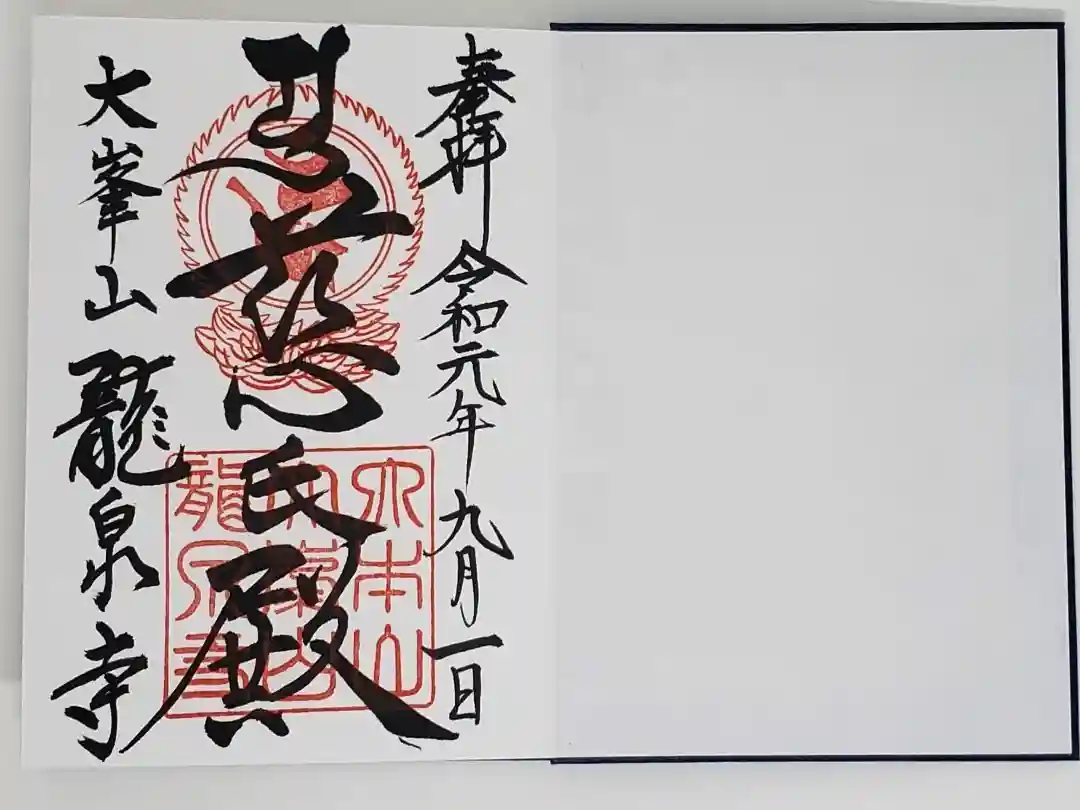 奉拝 令和元年九月一日
慈氏殿
大峯山 龍泉寺
大本山
大峯山
龍泉寺